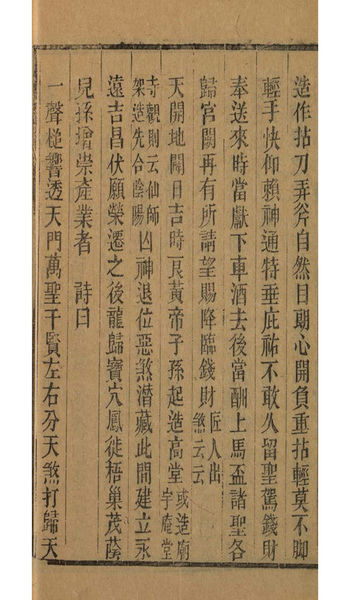 造作拈刀弄斧自然目朗心開負重拈輕莫不脚
輕手快仰賴神通特垂庇祐不敢久留聖駕錢財
奉送來時當獻下車酒去後當酬上馬盃諸聖各
歸宮闕再有所請望賜降臨錢財匠人出煞云云
天開地闢日吉時良黃帝子孫起造高堂或造廟宇庵堂
寺觀則云仙師架造先合陰陽凶神退位惡煞潛藏此間建立永
遠吉昌伏願榮遷之後龍歸寶穴鳳徙梧巢茂蔭
兒孫增崇產業者 詩曰
一聲槌響透天門萬聖千賢左右分天煞打歸天